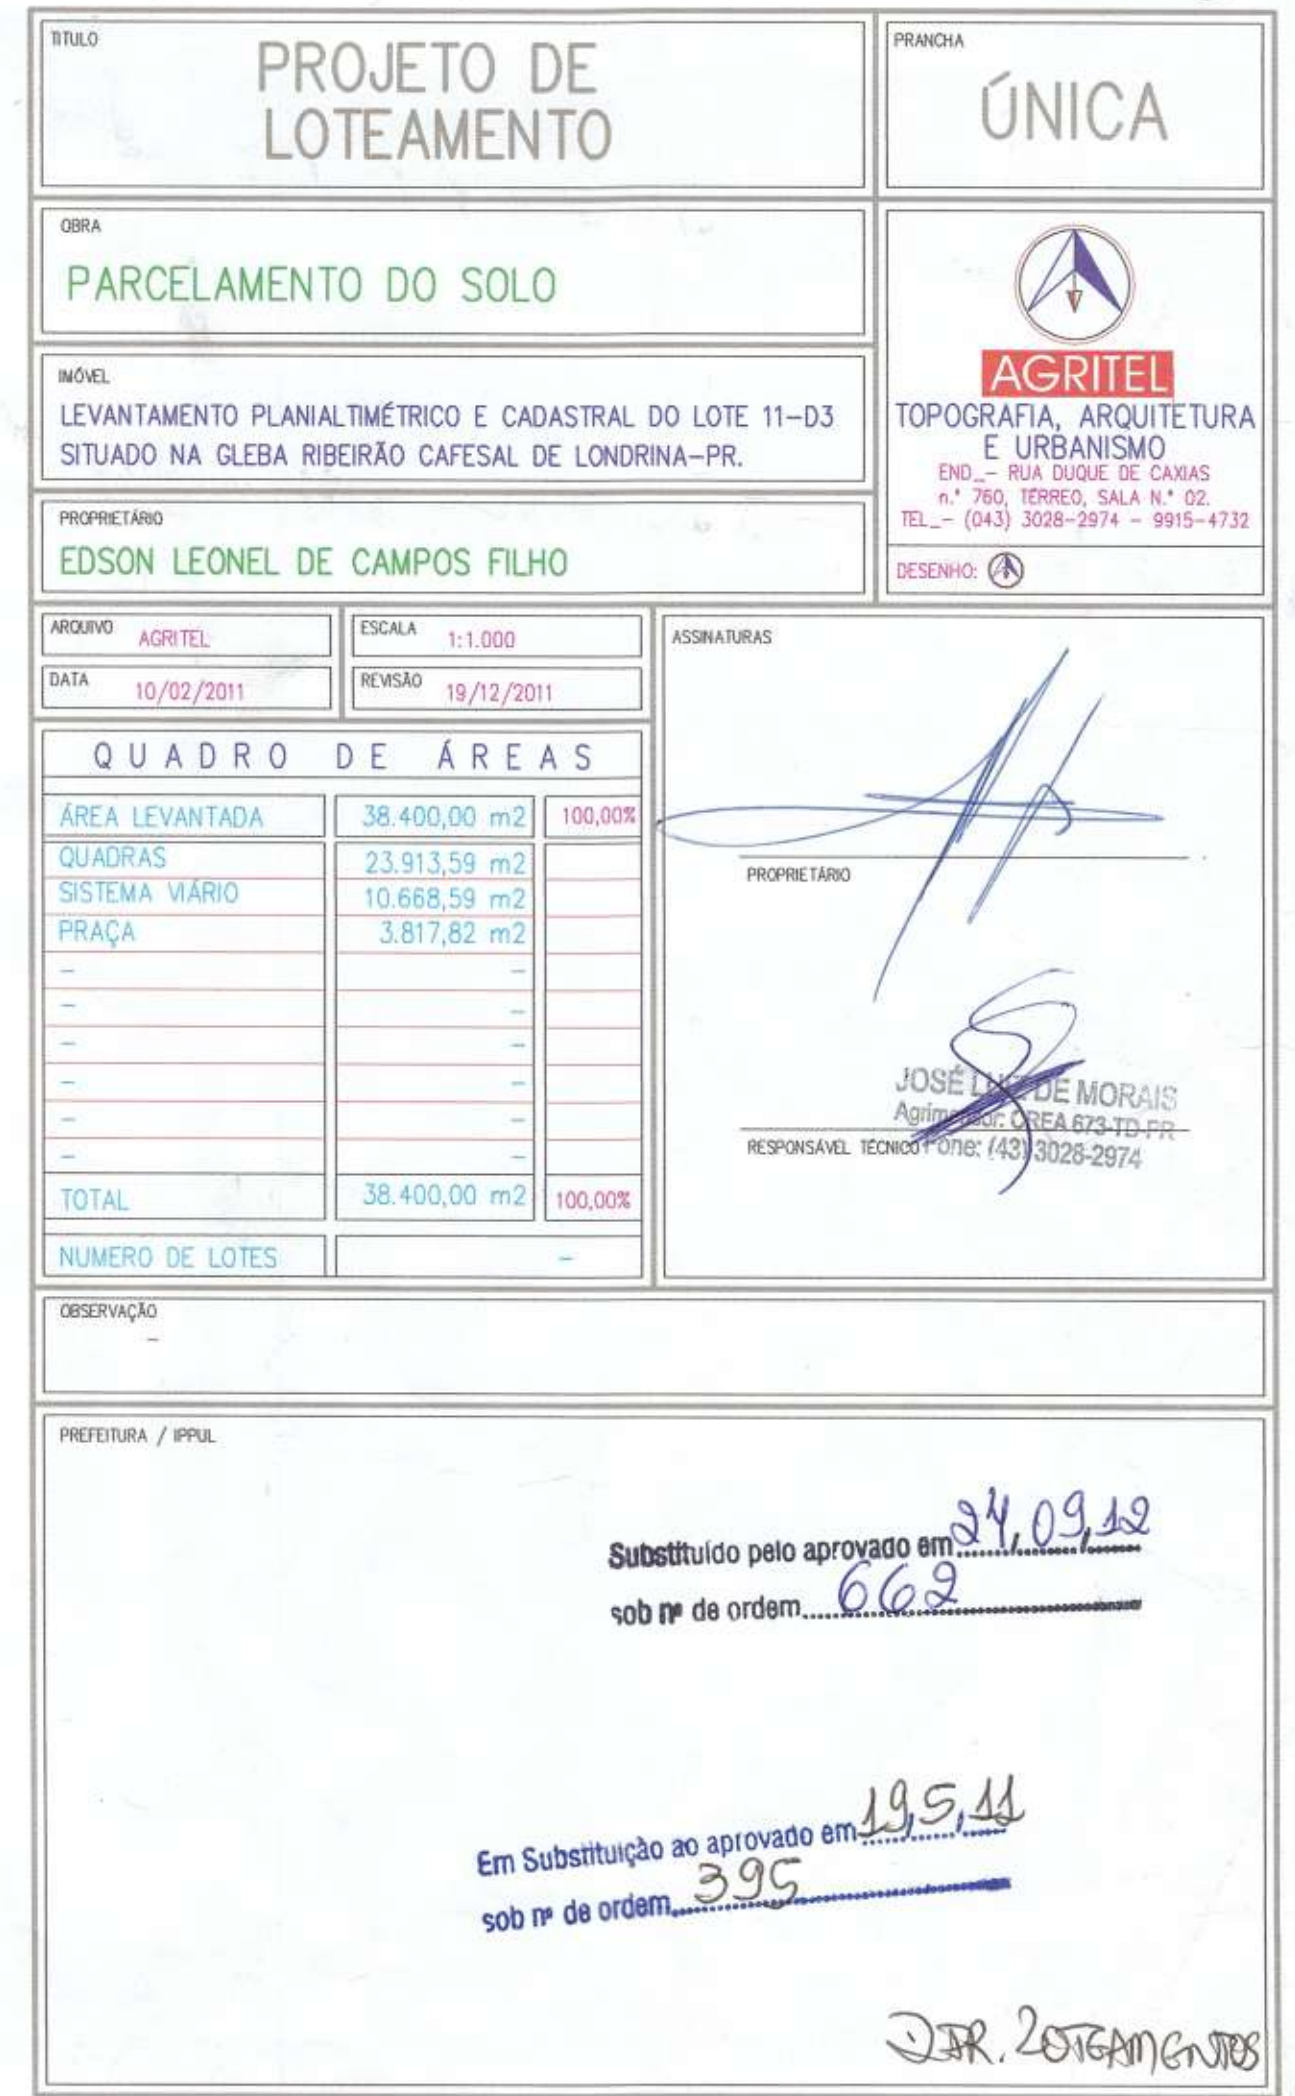 TITULO
PROJETO DE
LOTEAMENTO
PRANCHA
ÚNICA
OBRA
PARCELAMENTO DO SOLO
IMÓVEL
LEVANTAMENTO PLANIALTIMÉTRICO E CADASTRAL DO LOTE 11-D3
SITUADO NA GLEBA RIBEIRÃO CAFESAL DE LONDRINA-PR.
PROPRIETÁRIO
EDSON LEONEL DE CAMPOS FILHO
AGRITEL
TOPOGRAFIA, ARQUITETURA
E URBANISMO
END_- RUA DUQUE DE CAXIAS
n.º 760, TÉRREO, SALA N.º 02.
TEL_- (043) 3028-2974 - 9915-4732
DESENHO:
ARQUIVO AGRITEL
ESCALA 1:1.000
DATA 10/02/2011
REVISÃO 19/12/2011
QUADRO DE ÁREAS
ÁREA LEVANTADA 38.400,00 m2 100,00%
QUADRAS 23.913,59 m2
SISTEMA VIÁRIO 10.668,59 m2
PRAÇA 3.817,82 m2
- -
- -
- -
- -
- -
- -
TOTAL 38.400,00 m2 100,00%
NUMERO DE LOTES -
ASSINATURAS
PROPRIETÁRIO
JOSÉ LUIZ DE MORAIS
Agrimensor: CREA 673-TD-PR
RESPONSÁVEL TÉCNICO Fone: (43) 3028-2974
OBSERVAÇÃO
-
PREFEITURA / IPPUL
Substituído pelo aprovado em 24,09,12
sob nº de ordem 662
Em Substituição ao aprovado em 19,5,11
sob nº de ordem 395
DIR. LOTEAMENTOS